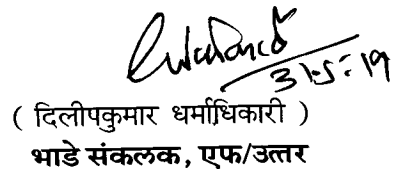 31.5.19
( दिलीपकुमार धर्माधिकारी )
भाडे संकलक, एफ/उत्तर